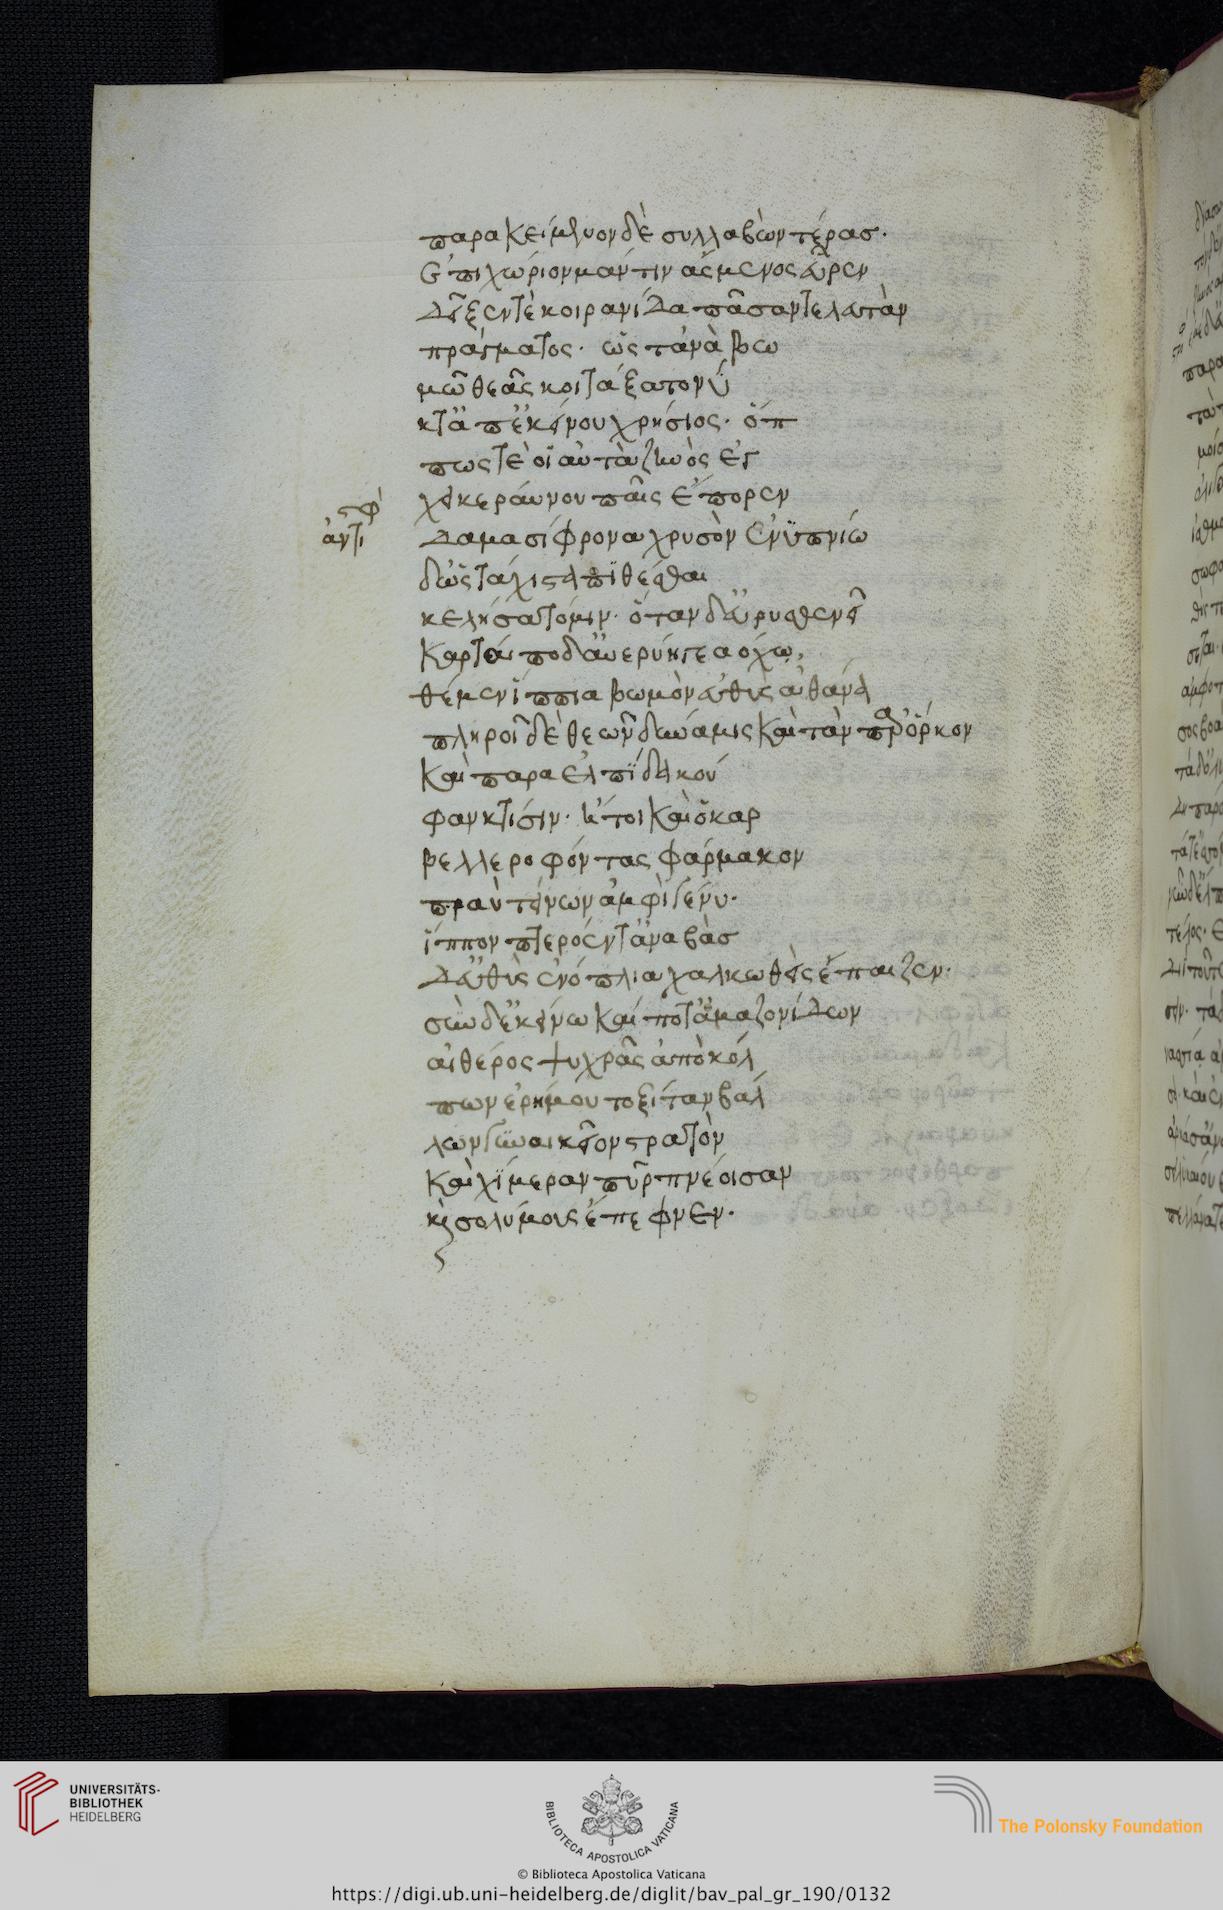 παρακείμενον δὲ συλλαβὼν τέρας·
ἐπιχώριον μάντιν ἄσμενος εὗρεν
δεῖξέν τε κοιρανίδα πᾶσαν τελευτὰν
πράγματος· ὥς τ' ἀνὰ βω
μῶ θεᾶς κοιτάξατο νύ
κτ' ἀπ' ἐκείνου χρήσιος· ὅπ
πως τέ οἱ αὐτὰ ζηνὸς ἐγ
χεικεραύνου παῖς ἔπορεν
στρ
ἀντι
δαμασίφρονα χρυσὸν ἐνυπνίω
δ' ᾧ τάχιστα πιθέσθαι
κελήσατό μιν· ὅταν δ' εὐρυσθενεῖ
καρταίποδ' αὐερύηγεαόχω,
θέμεν ἱππία βωμὸν εὐθὺς ἀθάνα
πληροῖ δὲ θεῶν δύναμις καὶ τὰν παρ' ὅρκον
καὶ παρὰ ἐλπίδα κού
φαν κτίσιν· ἤτοι καὶ ὁ καρ
βελλεροφόντας φάρμακον
πραῢ τείνων ἀμφὶ γένυ·
ἵππον πτερόεντ' ἀναβὰς
δ' εὐθὺς ἐνόπλια χαλκωθεὶς ἔπαιζεν·
σὺν δ' ἐκείνω καί ποτ' ἀμαζονίδων
αἰθέρος ψυχρᾶς ἀπὸ κόλ
πων ἐρήμου τοξίταν βάλ
λων γυναικεῖον στρατὸν
καὶ χίμεραν πῦρ πνέοισαν
καὶ σολύμους ἔπεφνεν·
UNIVERSITÄTS-
BIBLIOTHEK
HEIDELBERG
BIBLIOTECA APOSTOLICA VATICANA
The Polonsky Foundation
© Biblioteca Apostolica Vaticana
https://digi.ub.uni-heidelberg.de/diglit/bav_pal_gr_190/0132